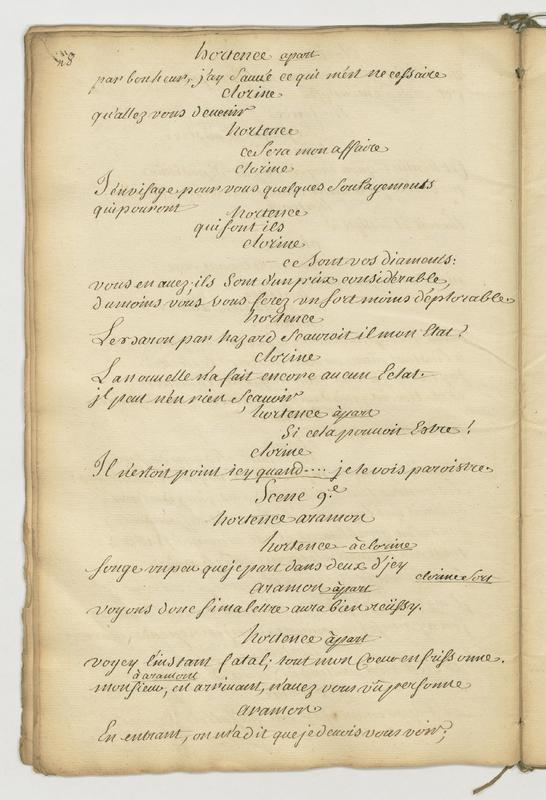 hortence apart
par bonheur, j'ay Sauué ce qui m'est necessaire
clorine
qu'allez vous deuenir
hortence
ce Sera mon affaire
clorine
J'envisage pour vous quelques Soulagements
qui pouront
hortence
qui sont ils
clorine
ce Sont vos diaments:
vous en auez, ils Sont d'un prix considerable,
du moins vous vous ferez un Sort moins déplorable
hortence
Le baron par hazard Scauroit il mon Etat?
clorine
La nouuelle n'a fait encore aucun Eclat.
jl peut n'en rien Scauoir
hortence àpart
Si cela pouuoit Estre!
clorine
Il n'estoit point icy quand.... je le vois paroistre.
Scene 9.e
hortence aramon
hortence à clorine
songe un peu que je part dans deux d'jcy
clorine Sort
aramon àpart
voyons donc si ma lettre aura bien reüssy.
hortence àpart
voyey l'instant fatal; tout mon Coeur en frissonne.
à aramont
monsieur, en arriuant, n'auez vous vû personne
aramon
En entrant, on m'a dit que je deuois vous voir;